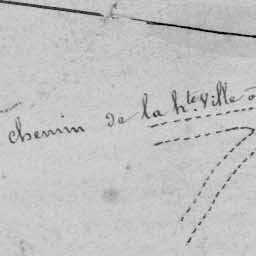 chemin de la hte Ville